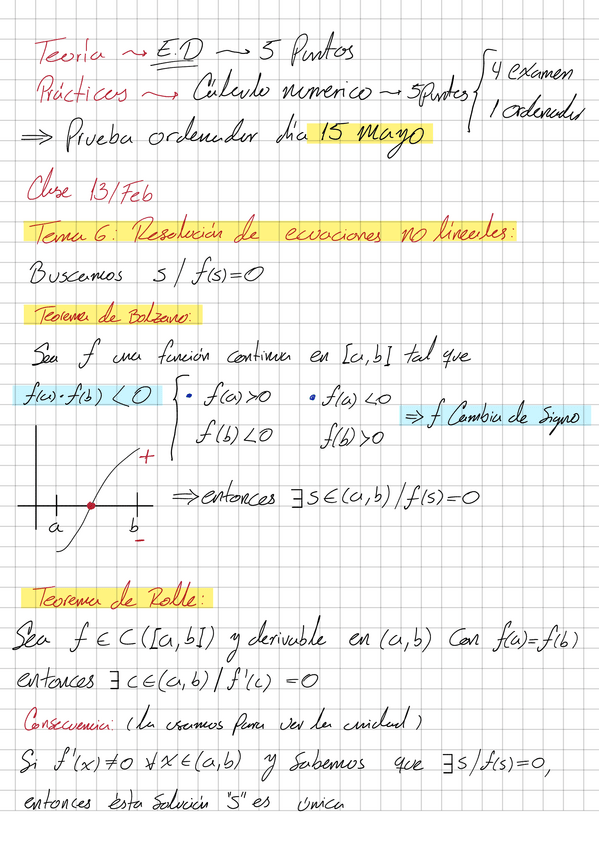 Teoría ⤳ E.D ⤳ 5 Puntos
Prácticas ⤳ Cálculo numerico → 5 Puntos { 4 examen
1 ordenador
⇒ Prueba ordenador día 15 Mayo
Clase 13/Feb
Tema 6: Resolución de ecuaciones no lineales:
Buscamos s / f(s)=0
Teorema de Bolzano:
Sea f una función continua en [a,b] tal que
f(a)·f(b) < 0 { • f(a)>0 • f(a)<0
f(b)<0 f(b)>0
⇒ f Cambia de Signo
+
a b
−
⇒ entonces ∃ s ∈ (a,b) / f(s)=0
Teorema de Rolle:
Sea f ∈ C([a,b]) y derivable en (a,b) Con f(a)=f(b)
entonces ∃ c ∈ (a,b) / f'(c) = 0
Consecuencia: (la usamos para ver la unidad)
Si f'(x) ≠ 0 ∀ x ∈ (a,b) y Sabemos que ∃ s / f(s)=0,
entonces ésta Solución "S" es única